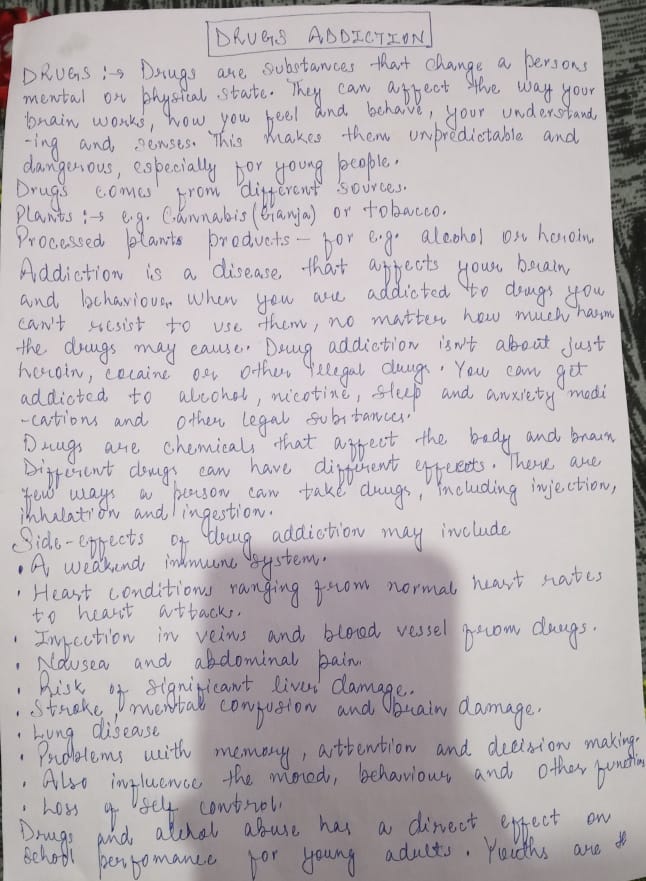 DRUGS ADDICTION
DRUGS :→ Drugs are substances that change a persons
mental or physical state. They can affect the way your
brain works, how you feel and behave, your understand
-ing and senses. This makes them unpredictable and
dangerous, especially for young people.
Drugs comes from different sources.
Plants :→ e.g. Cannabis (Ganja) or tobacco.
Processed plants products – for e.g. alcohol or heroin.
Addiction is a disease that affects your brain
and behaviour. When you are addicted to drugs you
can't resist to use them, no matter how much harm
the drugs may cause. Drug addiction isn't about just
heroin, cocaine or other illegal drugs. You can get
addicted to alcohol, nicotine, sleep and anxiety medi
-cations and other legal substances.
Drugs are chemicals that affect the body and brain
Different drugs can have different effects. There are
few ways a person can take drugs, including injection,
inhalation and ingestion.
Side-effects of drug addiction may include
• A weakend immune system.
• Heart conditions ranging from normal heart rates
to heart attacks.
• Infection in veins and blood vessel from drugs.
• Nausea and abdominal pain.
• Risk of significant liver damage.
• Stroke, mental confusion and brain damage.
• Lung disease
• Problems with memory, attention and decision making.
• Also influence the mood, behaviour and other function
• Loss of self control.
Drugs and alchol abuse has a direct effect on
school perfomance for young adults. Youths are